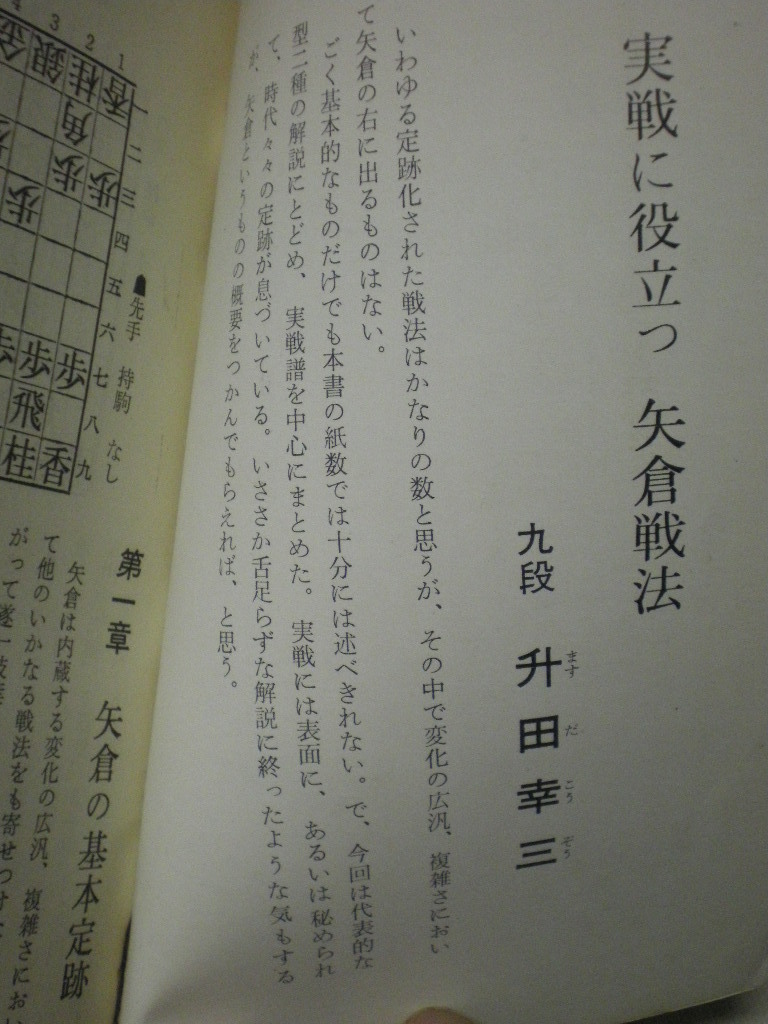 実戦に役立つ 矢倉戦法
九段 升田幸三
ます だ こう ぞう
いわゆる定跡化された戦法はかなりの数と思うが、その中で変化の広汎、複雑さにおい
て矢倉の右に出るものはない。
ごく基本的なものだけでも本書の紙数では十分には述べきれない。で、今回は代表的な
型二種の解説にとどめ、実戦譜を中心にまとめた。実戦には表面に、あるいは秘められ
て、時代々々の定跡が息づいている。いささか舌足らずな解説に終ったような気もする
が、矢倉というものの概要をつかんでもらえれば、と思う。
4 3 2 1
金 銀 桂 香 一
角 二
歩 歩 歩 三
四
五
六
歩 歩 歩 七
飛 八
桂 香 九
☗先手 持駒 なし
第一章 矢倉の基本定跡
矢倉は内蔵する変化の広汎、複雑さにおい
て他のいかなる戦法をも寄せつけ
がって